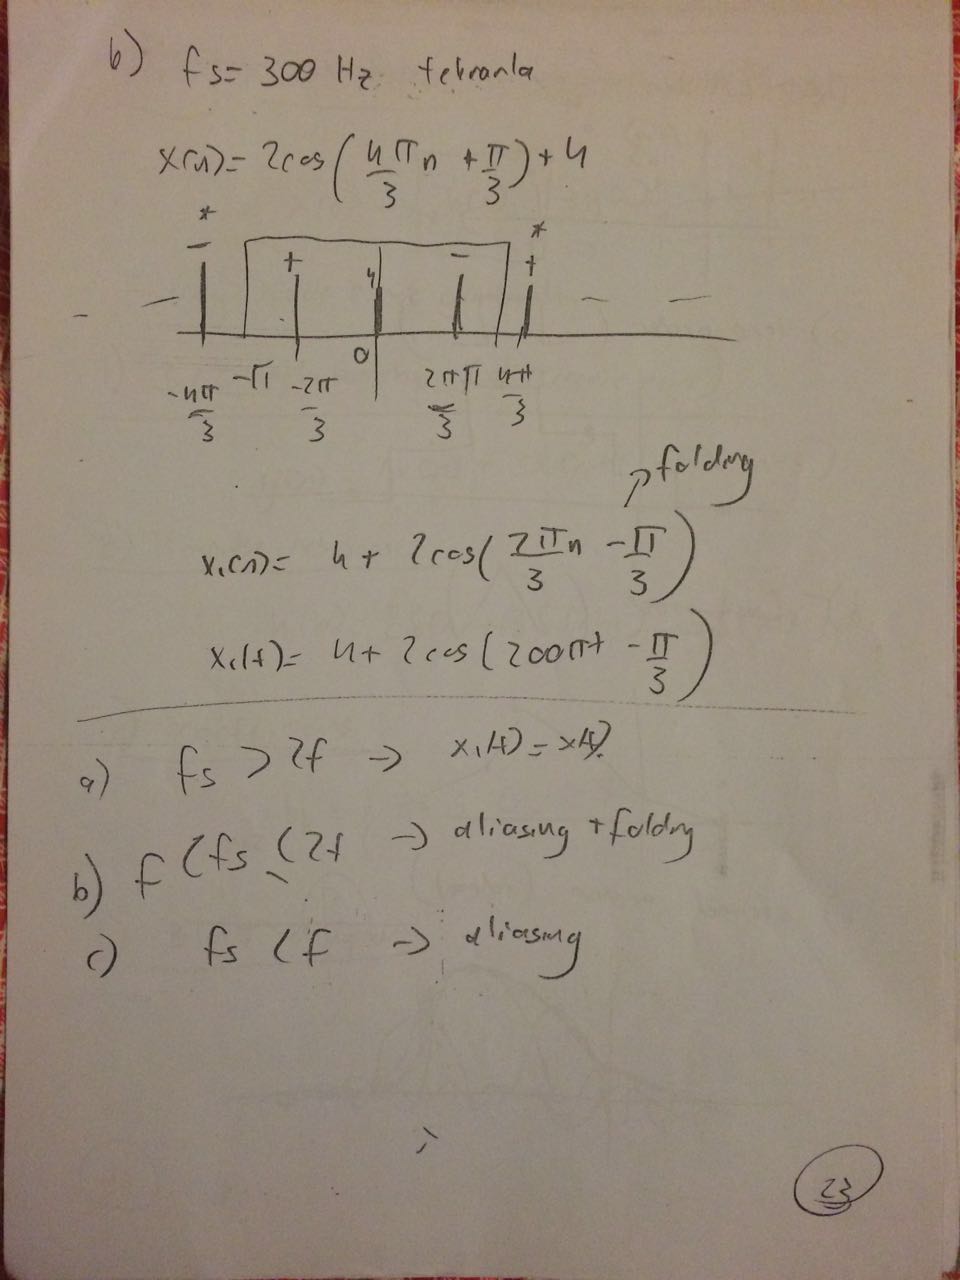 b) fs= 300 Hz tekrarla
x(n)= 2cos(4πn/3 + π/3)+4
* *
− + 4 − +
0
-4π/3 -π -2π/3 2π/3 π 4π/3
folding
x₁(n)= 4+ 2cos(2πn/3 - π/3)
x₁(t)= 4+ 2cos(200πt - π/3)
a) fs > 2f → x₁(t)=x(t)
b) f < fs < 2f → aliasing + folding
c) fs < f → aliasing
23